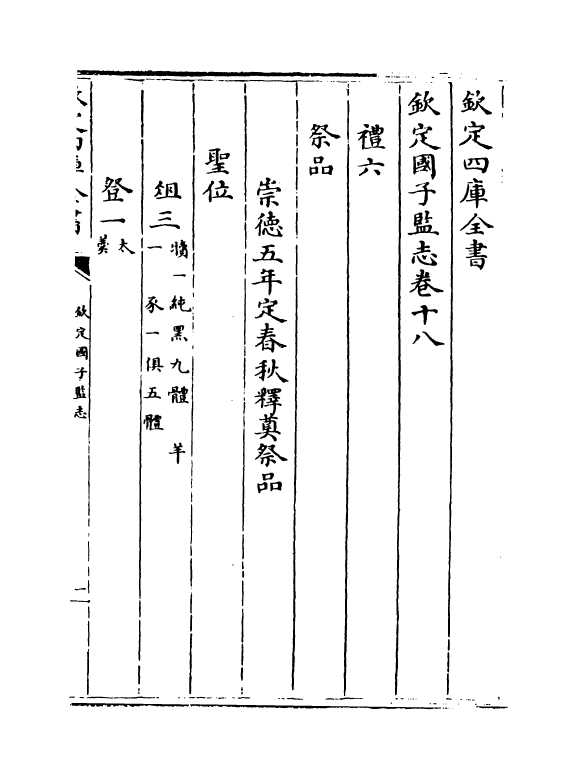 欽定四庫全書
欽定國子監志卷十八
禮六
祭品
崇徳五年定春秋釋奠祭品
聖位
俎三犢一純黑九體 羊一 豕一俱五體
登一太羹
欽定國子監志
一